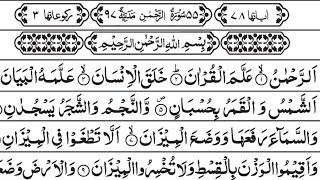 اٰیاتها ٧٨ ٥٥ سُوْرَةُ الرَّحْمٰنِ مَدَنِيَّةٌ ٩٧ رکوعاتها ٣
بِسْمِ اللّٰهِ الرَّحْمٰنِ الرَّحِيْمِ
اَلرَّحْمٰنُ ۙ عَلَّمَ الْقُرْاٰنَ ؕ خَلَقَ الْاِنْسَانَ ۙ عَلَّمَهُ الْبَيَانَ
اَلشَّمْسُ وَ الْقَمَرُ بِحُسْبَانٍ ۙ وَّالنَّجْمُ وَالشَّجَرُ يَسْجُدٰنِ
وَالسَّمَآءَ رَفَعَهَا وَوَضَعَ الْمِيْزَانَ ۙ اَلَّا تَطْغَوْا فِى الْمِيْزَانِ
وَ اَقِيْمُوا الْوَزْنَ بِالْقِسْطِ وَلَا تُخْسِرُوا الْمِيْزَانَ وَ الْاَرْضَ وَضَعَ